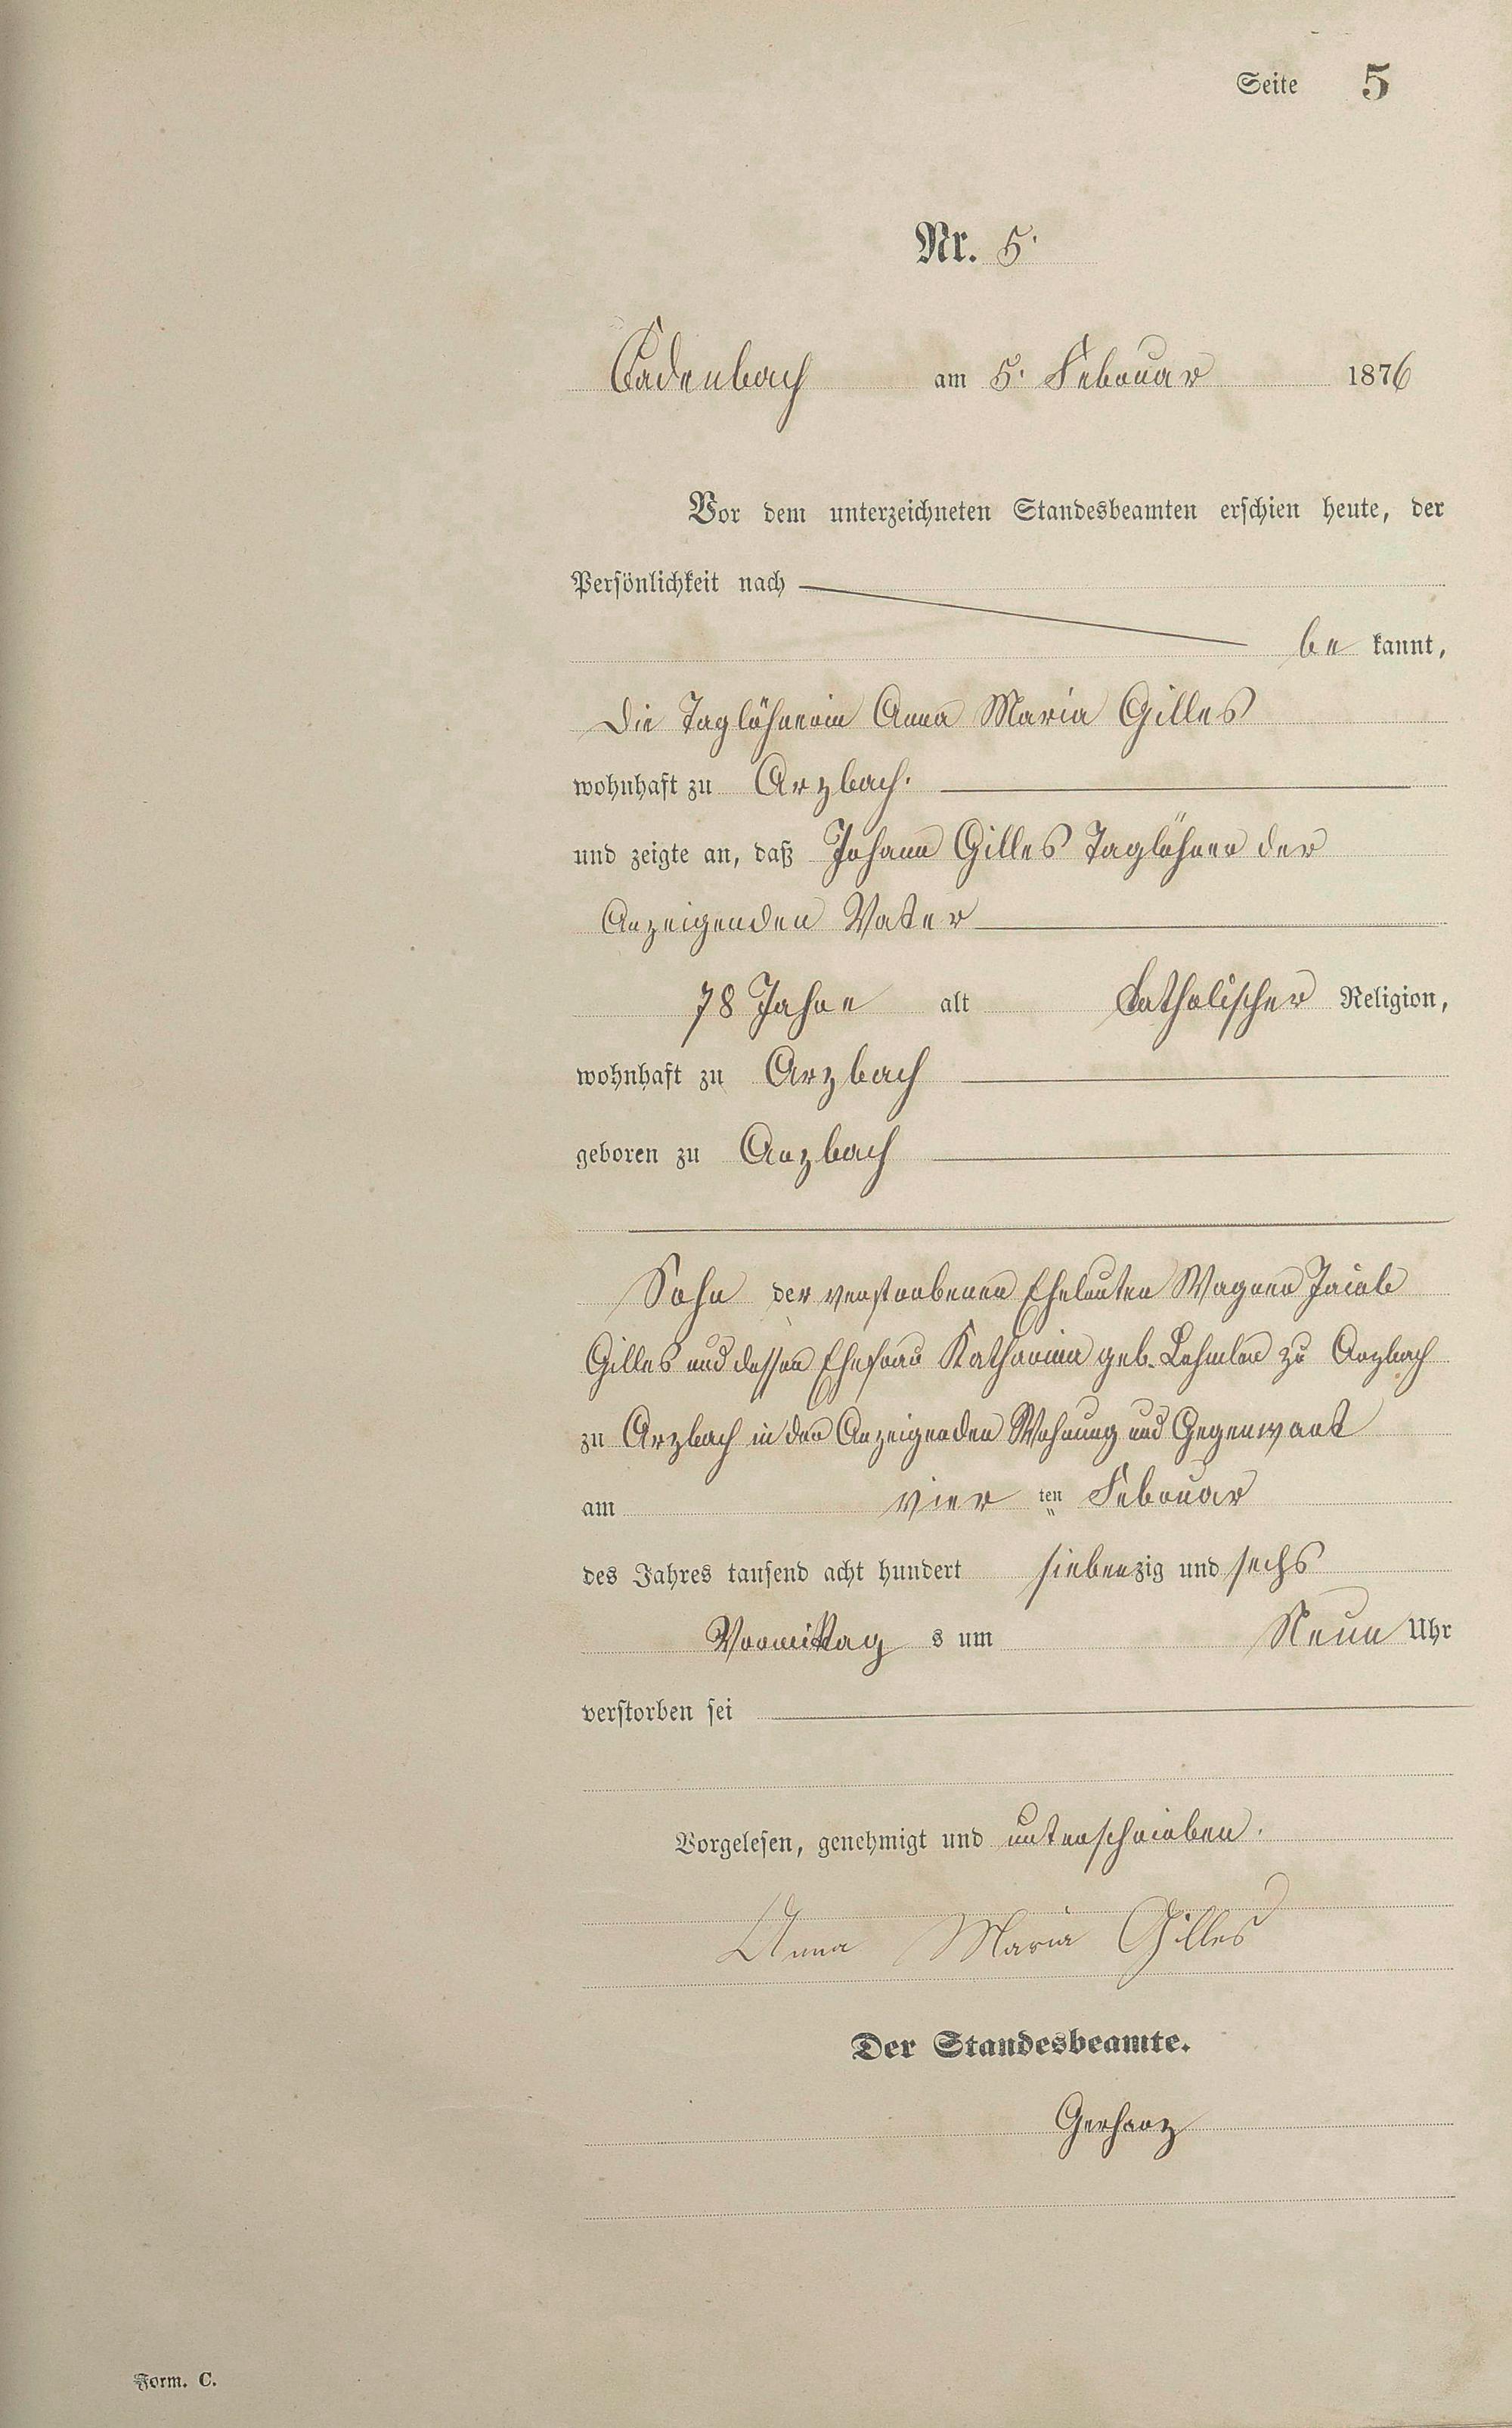 Seite 5
Nr. 5.
Cadenbach am 5. Februar 1876
Vor dem unterzeichneten Standesbeamten erschien heute, der
Persönlichkeit nach
be kannt,
die Taglöhnerin Anna Maria Gilles
wohnhaft zu Arzbach.
und zeigte an, daß Johann Gilles Taglöhner der
Anzeigenden Vater
78 Jahre alt katholischer Religion,
wohnhaft zu Arzbach
geboren zu Arzbach
Sohn der verstorbenen Eheleuten Wagner Jacob
Gilles und dessen Ehefrau Katharina geb. zu Arzbach
zu Arzbach in der Anzeigenden Wohnung und Gegenwart
am vier ten Februar
des Jahres tausend acht hundert siebenzig und sechs
Vormittag s um Neun Uhr
verstorben sei
Vorgelesen, genehmigt und unterschrieben.
Anna Maria Gilles
Der Standesbeamte.
Gerharz
Form. C.